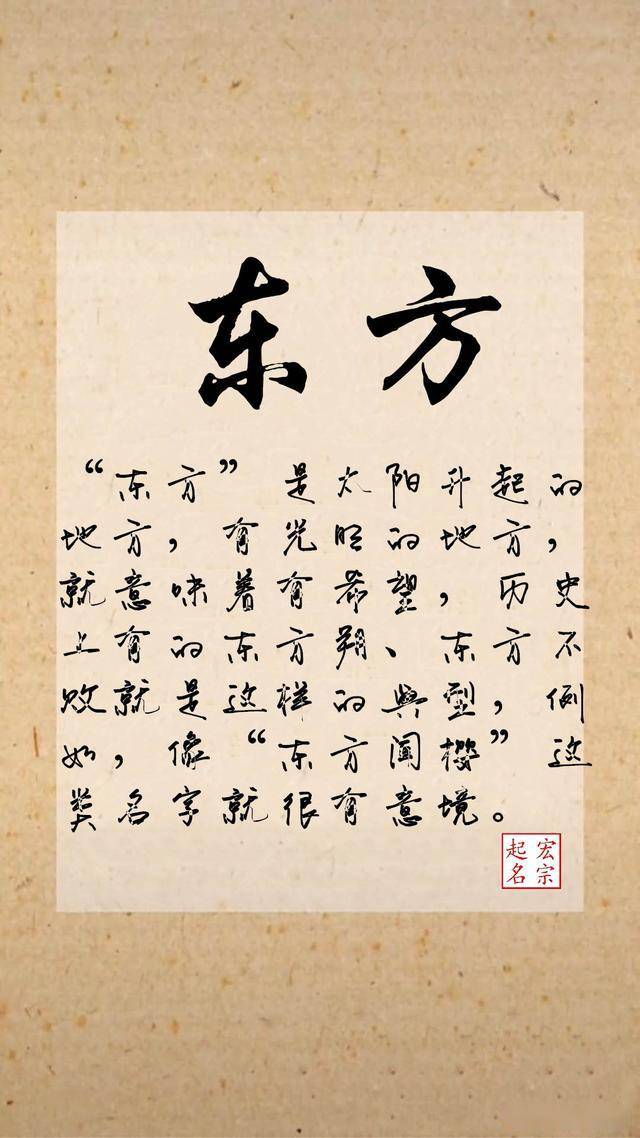 东方
“东方” 是太阳升起的
地方，有光明的地方，
就意味着有希望，历史
上有的东方朔、东方不
败就是这样的典型，例
如，像“东方闻樱”这
类名字就很有意境。
宏宗
起名